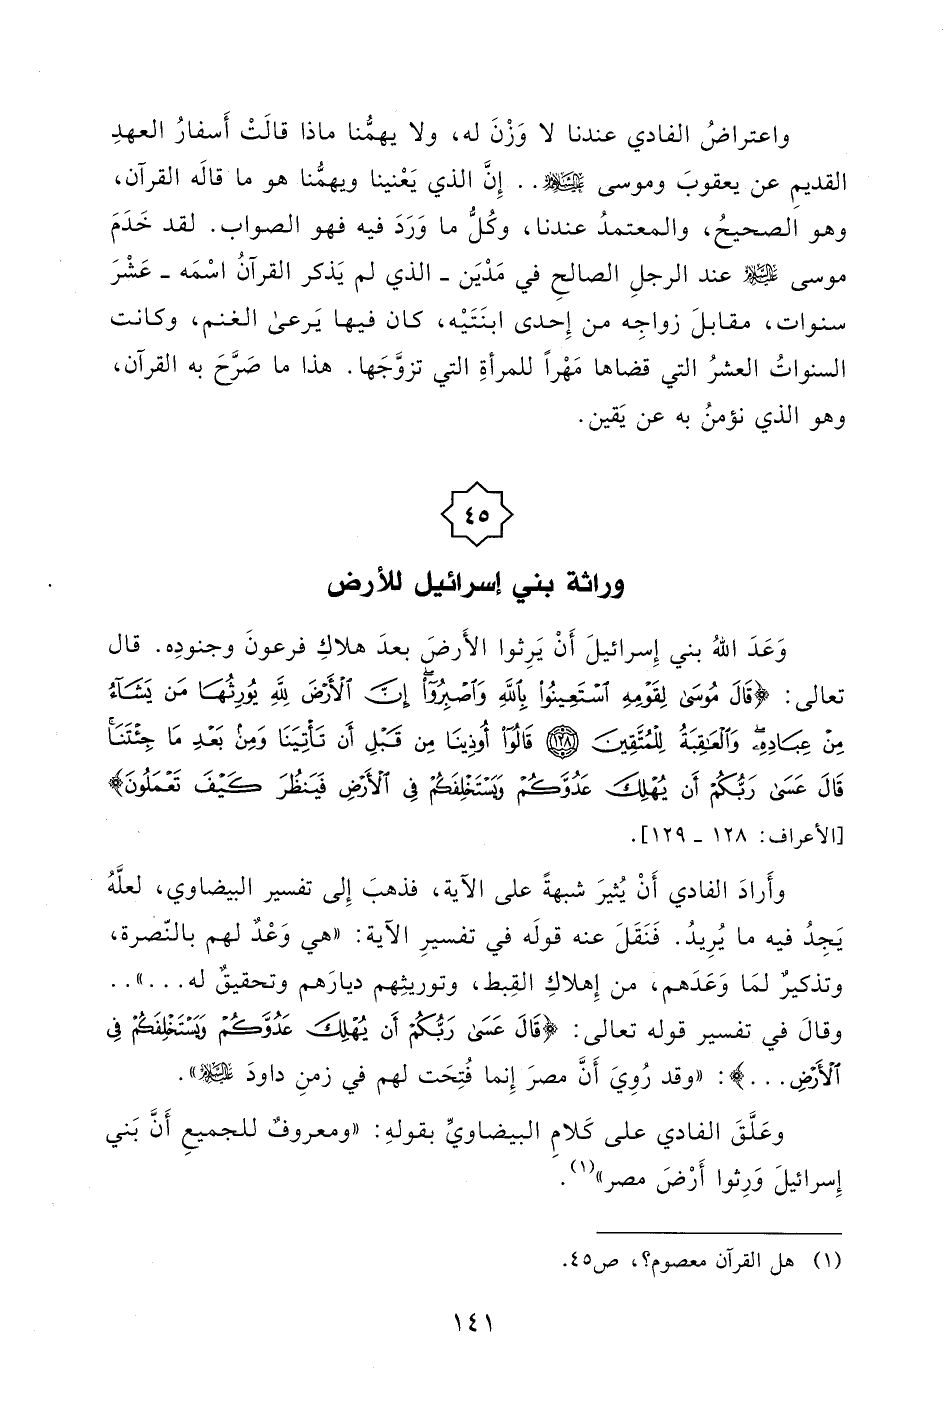 واعتراضُ الفادي عندنا لا وَزْنَ له، ولا يهمُّنا ماذا قالَتْ أَسفارُ العهدِ
القديمِ عن يعقوبَ وموسى عليه السلام.. إِنَّ الذي يَعْنينا ويهمُّنا هو ما قالَه القرآن،
وهو الصحيحُ، والمعتمدُ عندنا، وكُلُّ ما وَرَدَ فيه فهو الصواب. لقد خَدَمَ
موسى عليه السلام عند الرجلِ الصالحِ في مَدْيَن ـ الذي لم يَذكر القرآنُ اسْمَه ـ عَشْرَ
سنوات، مقابلَ زواجِه من إِحدى ابنَتَيْه، كان فيها يَرعىٰ الغنم، وكانت
السنواتُ العشرُ التي قضاها مَهْراً للمرأةِ التي تزوَّجَها. هذا ما صَرَّحَ به القرآن،
وهو الذي نؤمنُ به عن يَقين.
٤٥
وراثة بني إسرائيل للأرض
وَعَدَ اللهُ بني إِسرائيلَ أَنْ يَرثوا الأَرضَ بعدَ هلاكِ فرعونَ وجنودِه. قال
تعالى: ﴿قَالَ مُوسَىٰ لِقَوْمِهِ ٱسْتَعِينُوا۟ بِٱللَّهِ وَٱصْبِرُوٓا۟ۖ إِنَّ ٱلْأَرْضَ لِلَّهِ يُورِثُهَا مَن يَشَآءُ
مِنْ عِبَادِهِۦۖ وَٱلْعَٰقِبَةُ لِلْمُتَّقِينَ ﴿١٢٨﴾ قَالُوٓا۟ أُوذِينَا مِن قَبْلِ أَن تَأْتِيَنَا وَمِنۢ بَعْدِ مَا جِئْتَنَاۚ
قَالَ عَسَىٰ رَبُّكُمْ أَن يُهْلِكَ عَدُوَّكُمْ وَيَسْتَخْلِفَكُمْ فِى ٱلْأَرْضِ فَيَنظُرَ كَيْفَ تَعْمَلُونَ﴾
[الأعراف: ١٢٨ ـ ١٢٩].
وأَرادَ الفادي أَنْ يُثيرَ شبهةً على الآية، فذهبَ إِلى تفسير البيضاوي، لعلَّهُ
يَجِدُ فيه ما يُريدُ. فَنَقَلَ عنه قولَه في تفسيرِ الآية: «هي وَعْدٌ لهم بالنّصرة،
وتذكيرٌ لمَا وَعَدَهم، من إِهلاكِ القِبط، وتوريثِهم ديارَهم وتحقيقٌ له...»..
وقالَ في تفسير قوله تعالى: ﴿قَالَ عَسَىٰ رَبُّكُمْ أَن يُهْلِكَ عَدُوَّكُمْ وَيَسْتَخْلِفَكُمْ فِى
ٱلْأَرْضِ...﴾: «وقد رُوِيَ أَنَّ مصرَ إِنما فُتِحَت لهم في زمنِ داودَ عليه السلام».
وعَلَّقَ الفادي على كَلامِ البيضاويِّ بقولهِ: «ومعروفٌ للجميعِ أَنَّ بَني
إِسرائيلَ وَرِثوا أَرْضَ مصر»(١).
(١) هل القرآن معصوم؟، ص٤٥.
١٤١